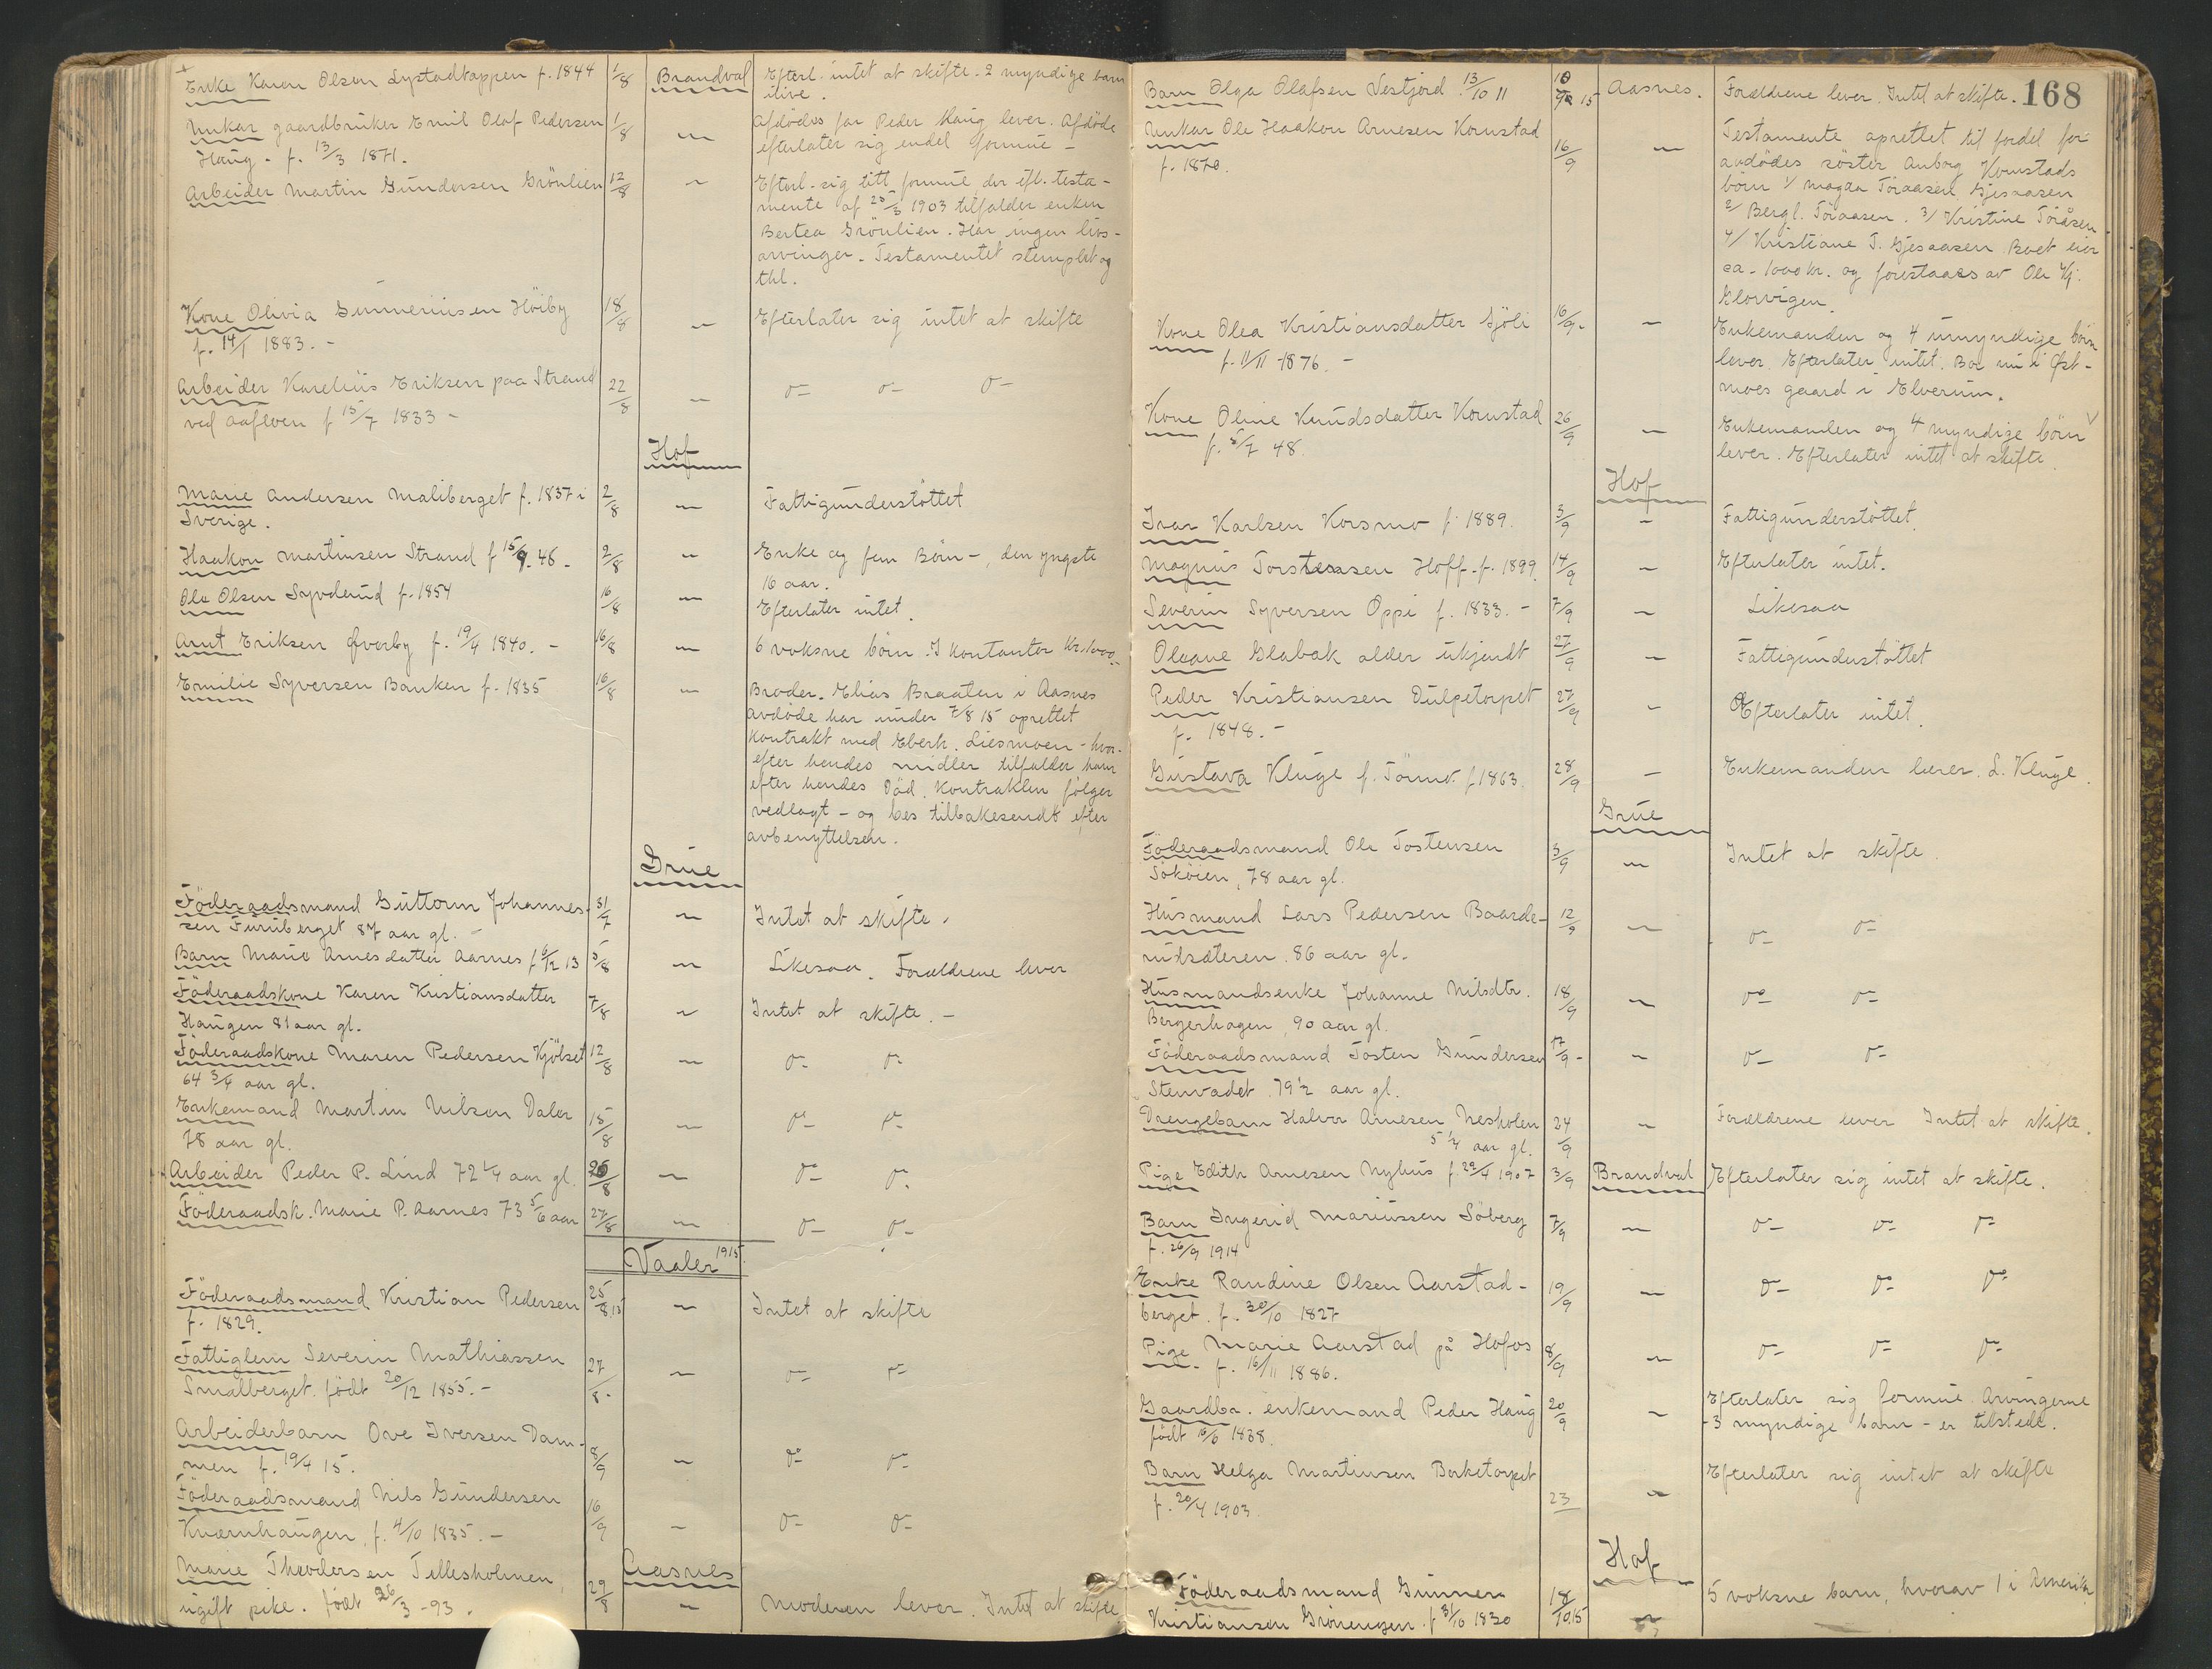 Enke Karen Olsen Lystadtappen f. 1844 1/8 Brandval Efterl. intet at skifte. 2 myndige barn
ilive.
Unkar gaardbruker Emil Olaf Pedersen 1/8 — Afdødes far Peder Haug lever. Afdøde
Haug. f. 13/3 1871. efterlater sig endel formue —
Arbeider Martin Gundersen Grönlien 12/8 — Efterl. sig litt formue, der efl. testa-
mente af 25/3 1903 tilfalder enken
Bertea Grönlien. Har ingen livs-
arvinger. Testamentet stemplet og
thl.
Kone Olivia Gunneriusen Höiby 18/8 — Efterlater sig intet at skifte
f. 14/1 1883. —
Arbeider Karelius Eriksen paa Strand 22/8 — o— o— o—
ved Aafloen f 15/7 1833 —
Hof
Marie Andersen Maliberget f. 1837 i 2/8 — Fattigunderstöttet
Sverige.
Haakon Martinsen Strand f 15/9. 48. 2/8 — Enke og fem Börn —, den yngste
16 aar.
Ole Olsen Syverud f. 1854 16/8 — Efterlater intet.
Arnt Eriksen Överby f. 19/4 1840. — 16/8 — 6 voksne börn. I kontanter Kr. 1000.—
Emilie Syversen Banken f. 1835 16/8 — Broder. Elias Braaten i Aasnes
avdöde har under 7/8 15 oprettet
kontrakt med Eberh. Liesmoen — hvor-
efter hendes midler tilfalder ham
efter hendes Död. Kontrakten fölger
vedlagt — og bes tilbakesendt efter
avbenyttelsen.
Grue
Föderaadsmand Guttorm Johannes- 31/7 — Intet at skifte.
sen Furuberget 87 aar gl. —
Barn Marie Arnesdatter Aarnes f 6/12 13 5/8 — Likesaa. Forældrene lever
Föderaadskone Karen Kristiansdatter 7/8 — Intet at skifte. —
Haugen 81 aar gl.
Föderaadskone Maren Pedersen Kjölset 12/8 — o— o—
64 3/4 aar gl.
Enkemand Martin Nilsen Daler 15/8 — o— o—
78 aar gl.
Arbeider Peder P. Lind 72 1/4 aar gl. 26/8 — o— o—
Föderaadsk. Marie P. Aarnes 73 5/6 aar 27/8 — o— o—
Vaaler 1915
Föderaadsmand Kristian Pedersen 25/8 15 — Intet at skifte
f. 1829.
Fattiglem Severin Mathiassen 27/8. — o— o—
Smalberget. födt 20/12 1855. —
Arbeiderbarn Ove Iversen Dam- 8/9 — o— o—
men f. 19/4 15.
Föderaadsmand Nils Gundersen 16/9 — o— o—
Kværnhaugen. f. 4/10 1835. —
Aasnes
Marie Theodersen Tellesholmen, 29/8 — Moderen lever. Intet at skifte
ugift pike. födt 26/3 -93.
168
Barn Olga Olafsen Vestjord 13/10 11 Aasnes. Forældrene lever. Intet at skifte.
Unkar Ole Haakon Arnesen Kornstad 16/9 — Testamente oprettet til fordel for
f. 1870. avdödes söster Anborg Kornstads
börn 1/ Magda Töraasen Gjesaasen
2/ Bergl. Töraasen. 3/ Kristine Töråsen
4/ Kristiane T. Gjesaasen. Boet eier
ca. 1000 kr. og forestaaes av Ole Kj.
Klorvigen.
Kone Olea Kristiansdatter Sjöli 16/9. — Enkemanden og 4 umyndige börn
f. 11/11 1876. — lever. Efterlater intet. Bor nu i Öst-
moes gaard i Elverum.
Kone Oline Knudsdatter Kornstad 26/9 — Enkemanden og 4 myndige börn
f. 5/7 48. lever. Efterlater intet at skifte.
Hof
Ivar Karlsen Korsmo f. 1889. 3/9 — Fattigunderstöttet.
Magnus Torstensen Hoff. f. 1899. 14/9 — Efterlater intet.
Severin Syversen Oppi f. 1833. — 7/9 — Likesaa
Oleane Glabak alder ukjendt 27/9 — Fattigunderstöttet
Peder Kristiansen Dulpetorpet 27/9 — Efterlater intet.
f. 1848. —
Gustava Kluge f. Törmo. f 1863 28/9 — Enkemanden lærer. L. Kluge.
Grue
Föderaadsmand Ole Tostensen 3/9 — Intet at skifte.
Sököien, 78 aar gl.
Husmand Lars Pedersen Baarde- 12/9 — o— o—
rudsæteren. 86 aar gl.
Husmandsenke Johanne Nilsdtr. 18/9 — o— o—
Bergerhagen, 90 aar gl.
Föderaadsmand Tosten Gundersen 17/9 — o— o—
Stenvadet. 79 1/2 aar gl.
Drengebarn Halvor Arnesen Nesholen 24/9 — Forældrene lever Intet at skifte.
5 1/4 aar gl.
Pige Edith Arnesen Nyhus f. 29/4 1907 3/9 Brandval Efterlater sig intet at skifte.
Barn Ingerid Mariussen Söberg 7/9 — o— o— o—
f. 26/9 1914
Enke Randine Olsen Aarstad- 19/9 — o— o— o—
berget. f. 30/10 1827
Pige Marie Aarstad på Hofos 8/9 — o— o— o—
f. 16/11 1886.
Gaardbr. enkemand Peder Haug 20/9 — Efterlater sig formue. Arvingerne
födt 16/6 1838. -3 myndige barn — er tilstede.
Barn Helga Martinsen Berketorpet 23 — Efterlater sig intet at skifte
f. 20/4 1903.
Hof
Föderaadsmand Gunner 18/10 15 — 5 voksne barn, hvorav 1 i Amerika
Kristiansen Grönengen. f 31/10 1830